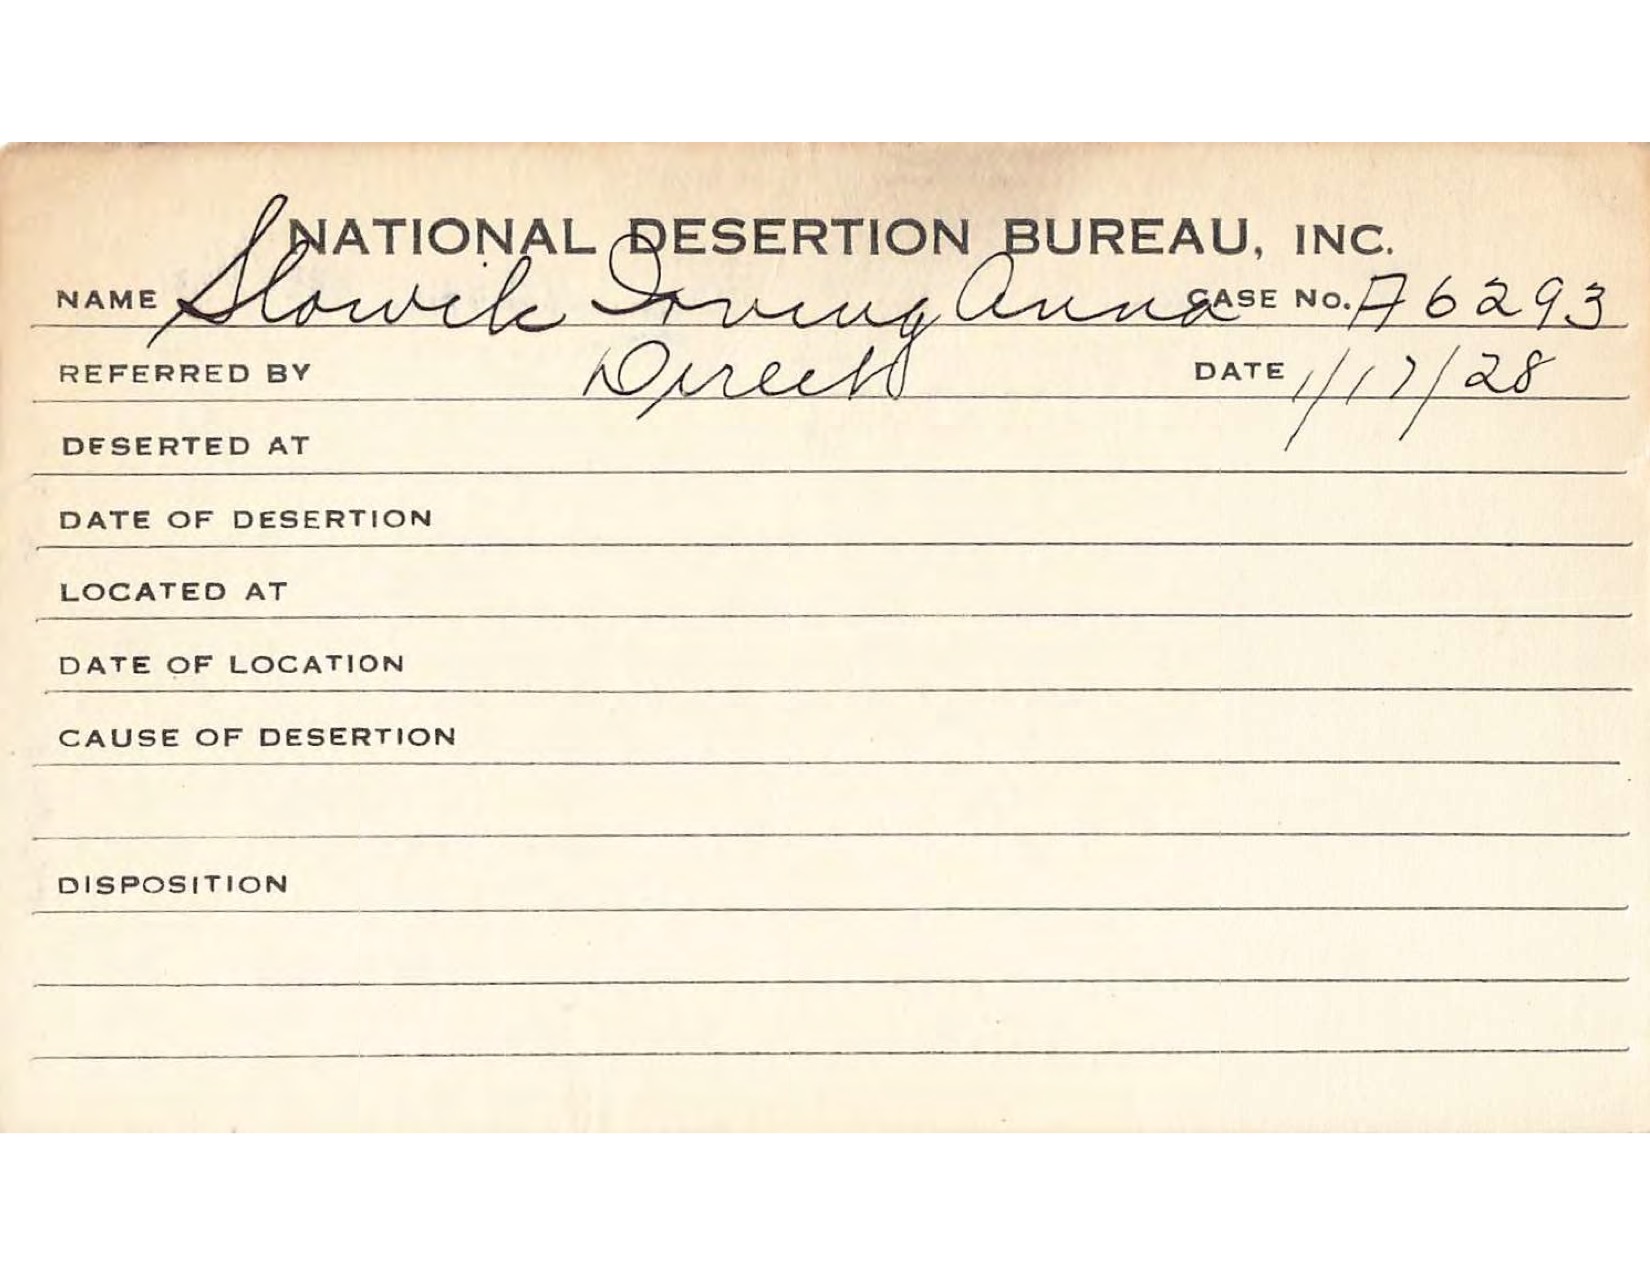 NATIONAL DESERTION BUREAU, INC.
NAME Slowik Irving Anna CASE No. A6293
REFERRED BY Direct DATE 1/17/28
DESERTED AT
DATE OF DESERTION
LOCATED AT
DATE OF LOCATION
CAUSE OF DESERTION
DISPOSITION